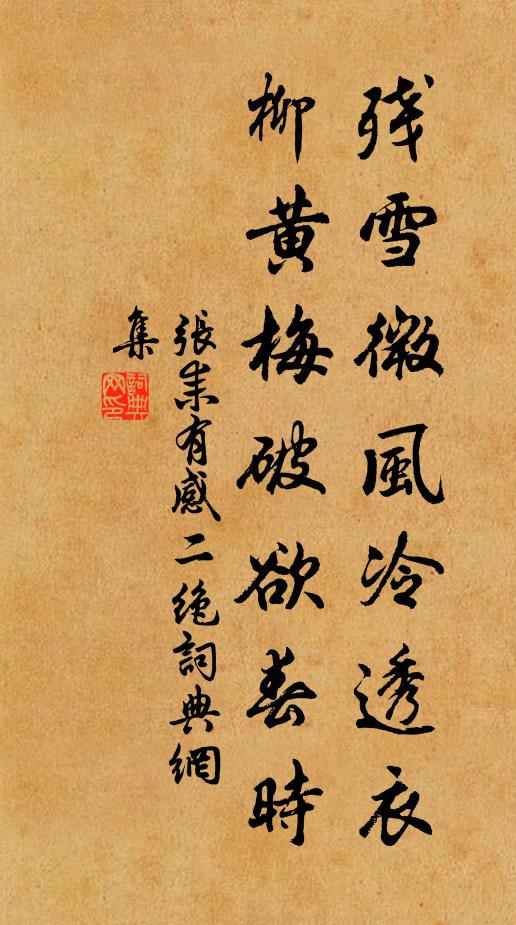 残雪微風冷透衣
柳黄梅破欲春時
張耒有感二绝詞典網
集
詞典
网印